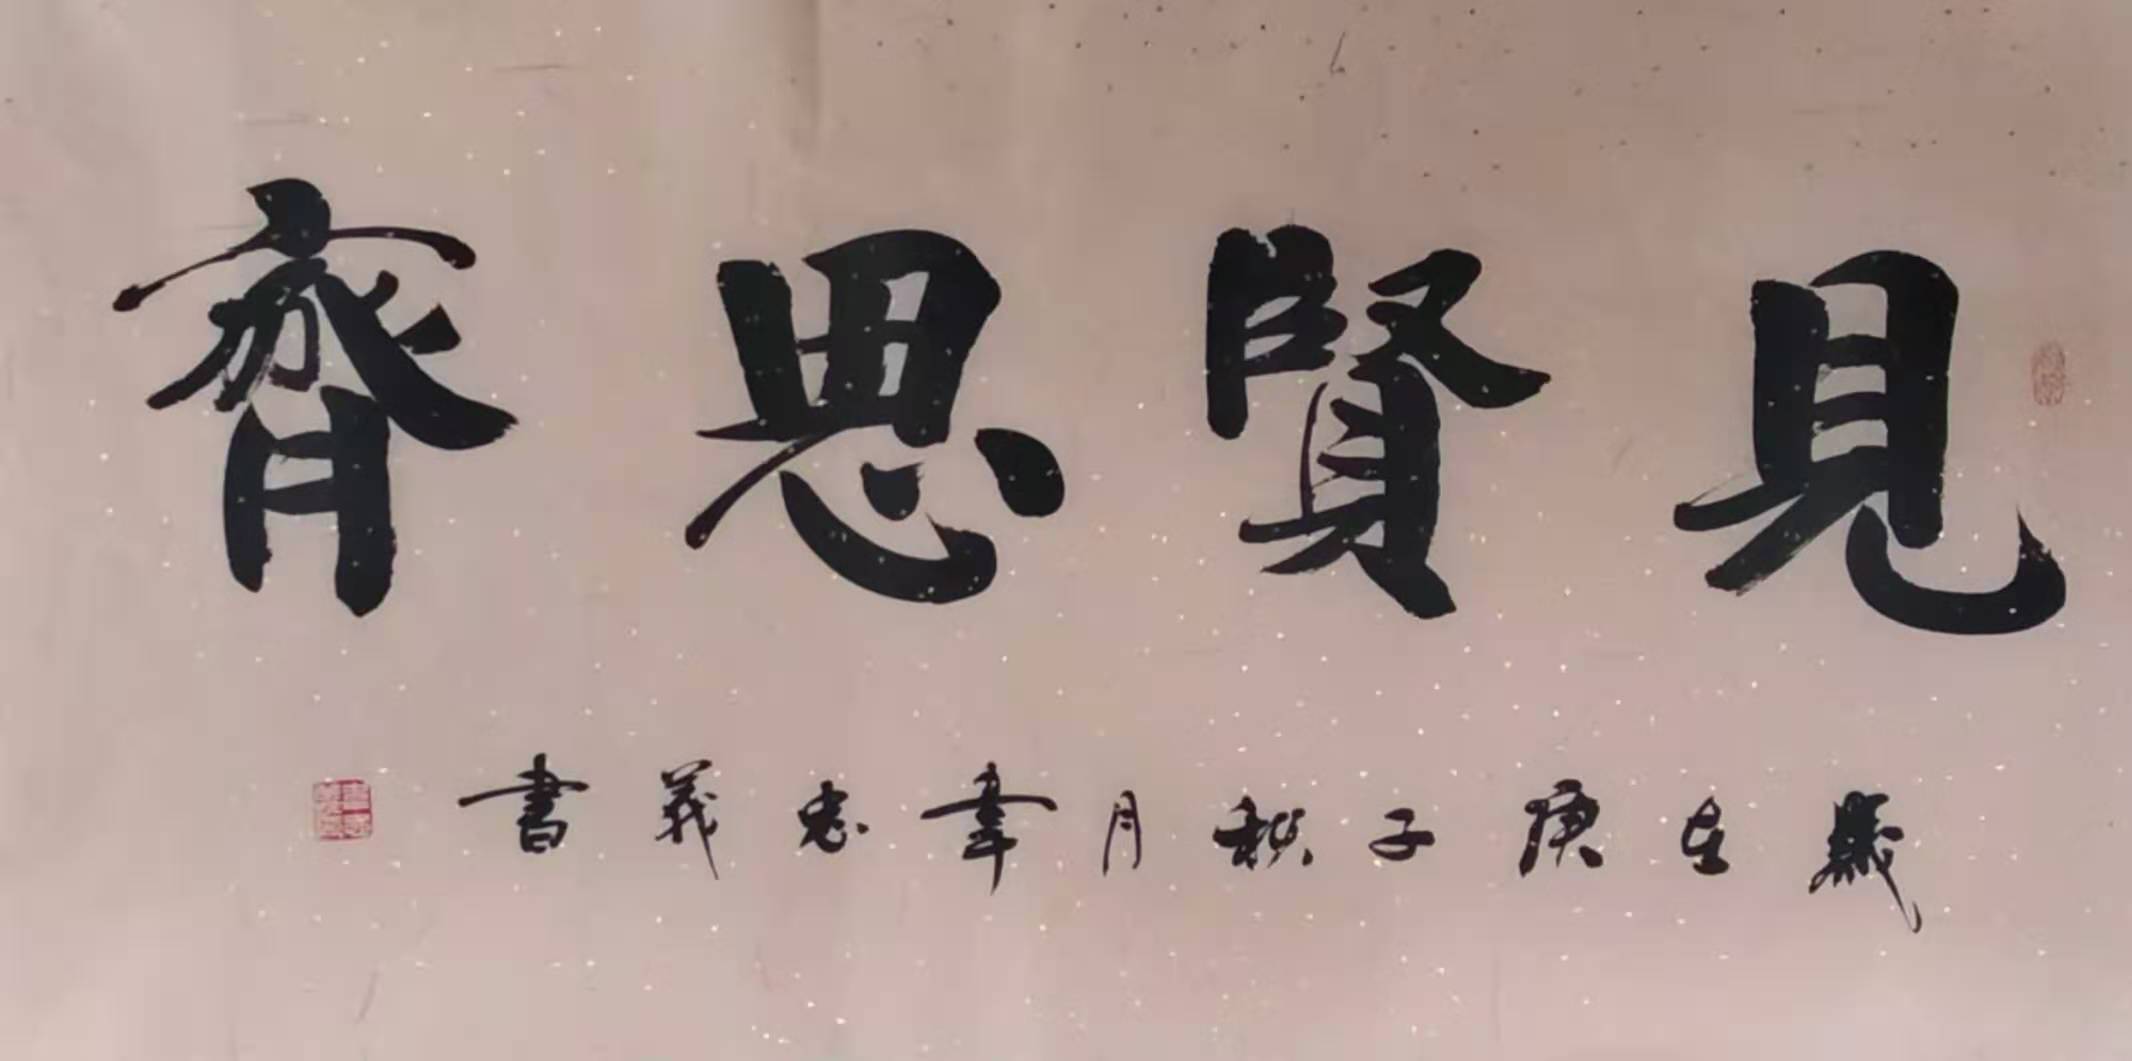 見賢思齊
歲在庚子秋月韋忠義書